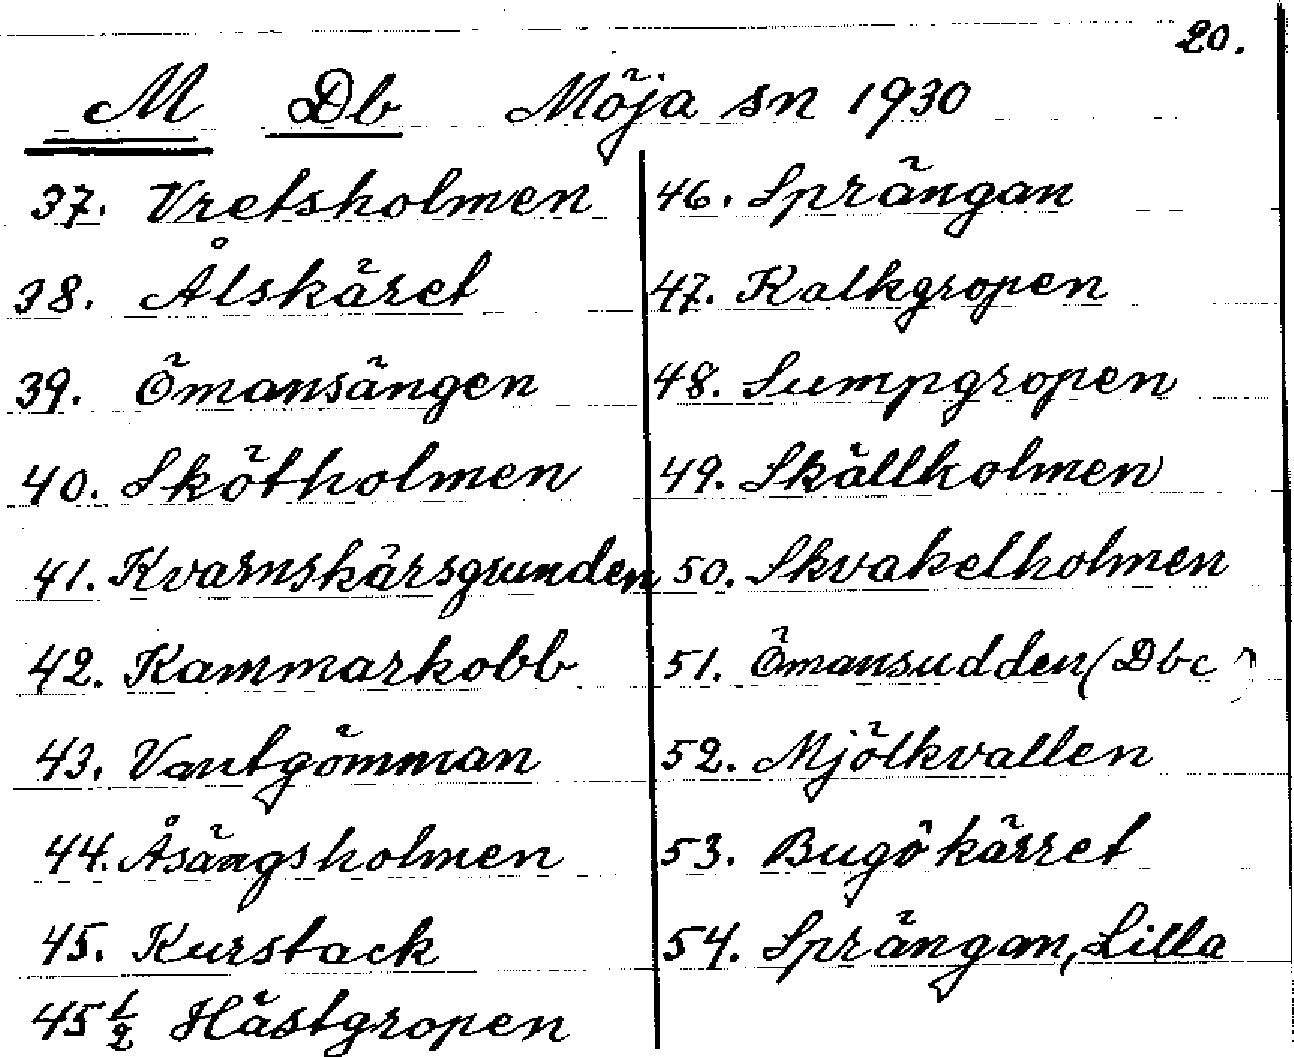 20.
M Db Möja sn 1930
37. Vretsholmen
38. Ålskäret
39. Ömansängen
40. Skötholmen
41. Kvarnskärsgrunden
42. Kammarkobb
43. Vantgömman
44. Åsängsholmen
45. Kurstack
45 1/2 Hästgropen
46. Sprängan
47. Kalkgropen
48. Sumpgropen
49. Skällholmen
50. Skvakelholmen
51. Ömansudden (Dbc)
52. Mjölkvallen
53. Bugökärret
54. Sprängan, Lilla